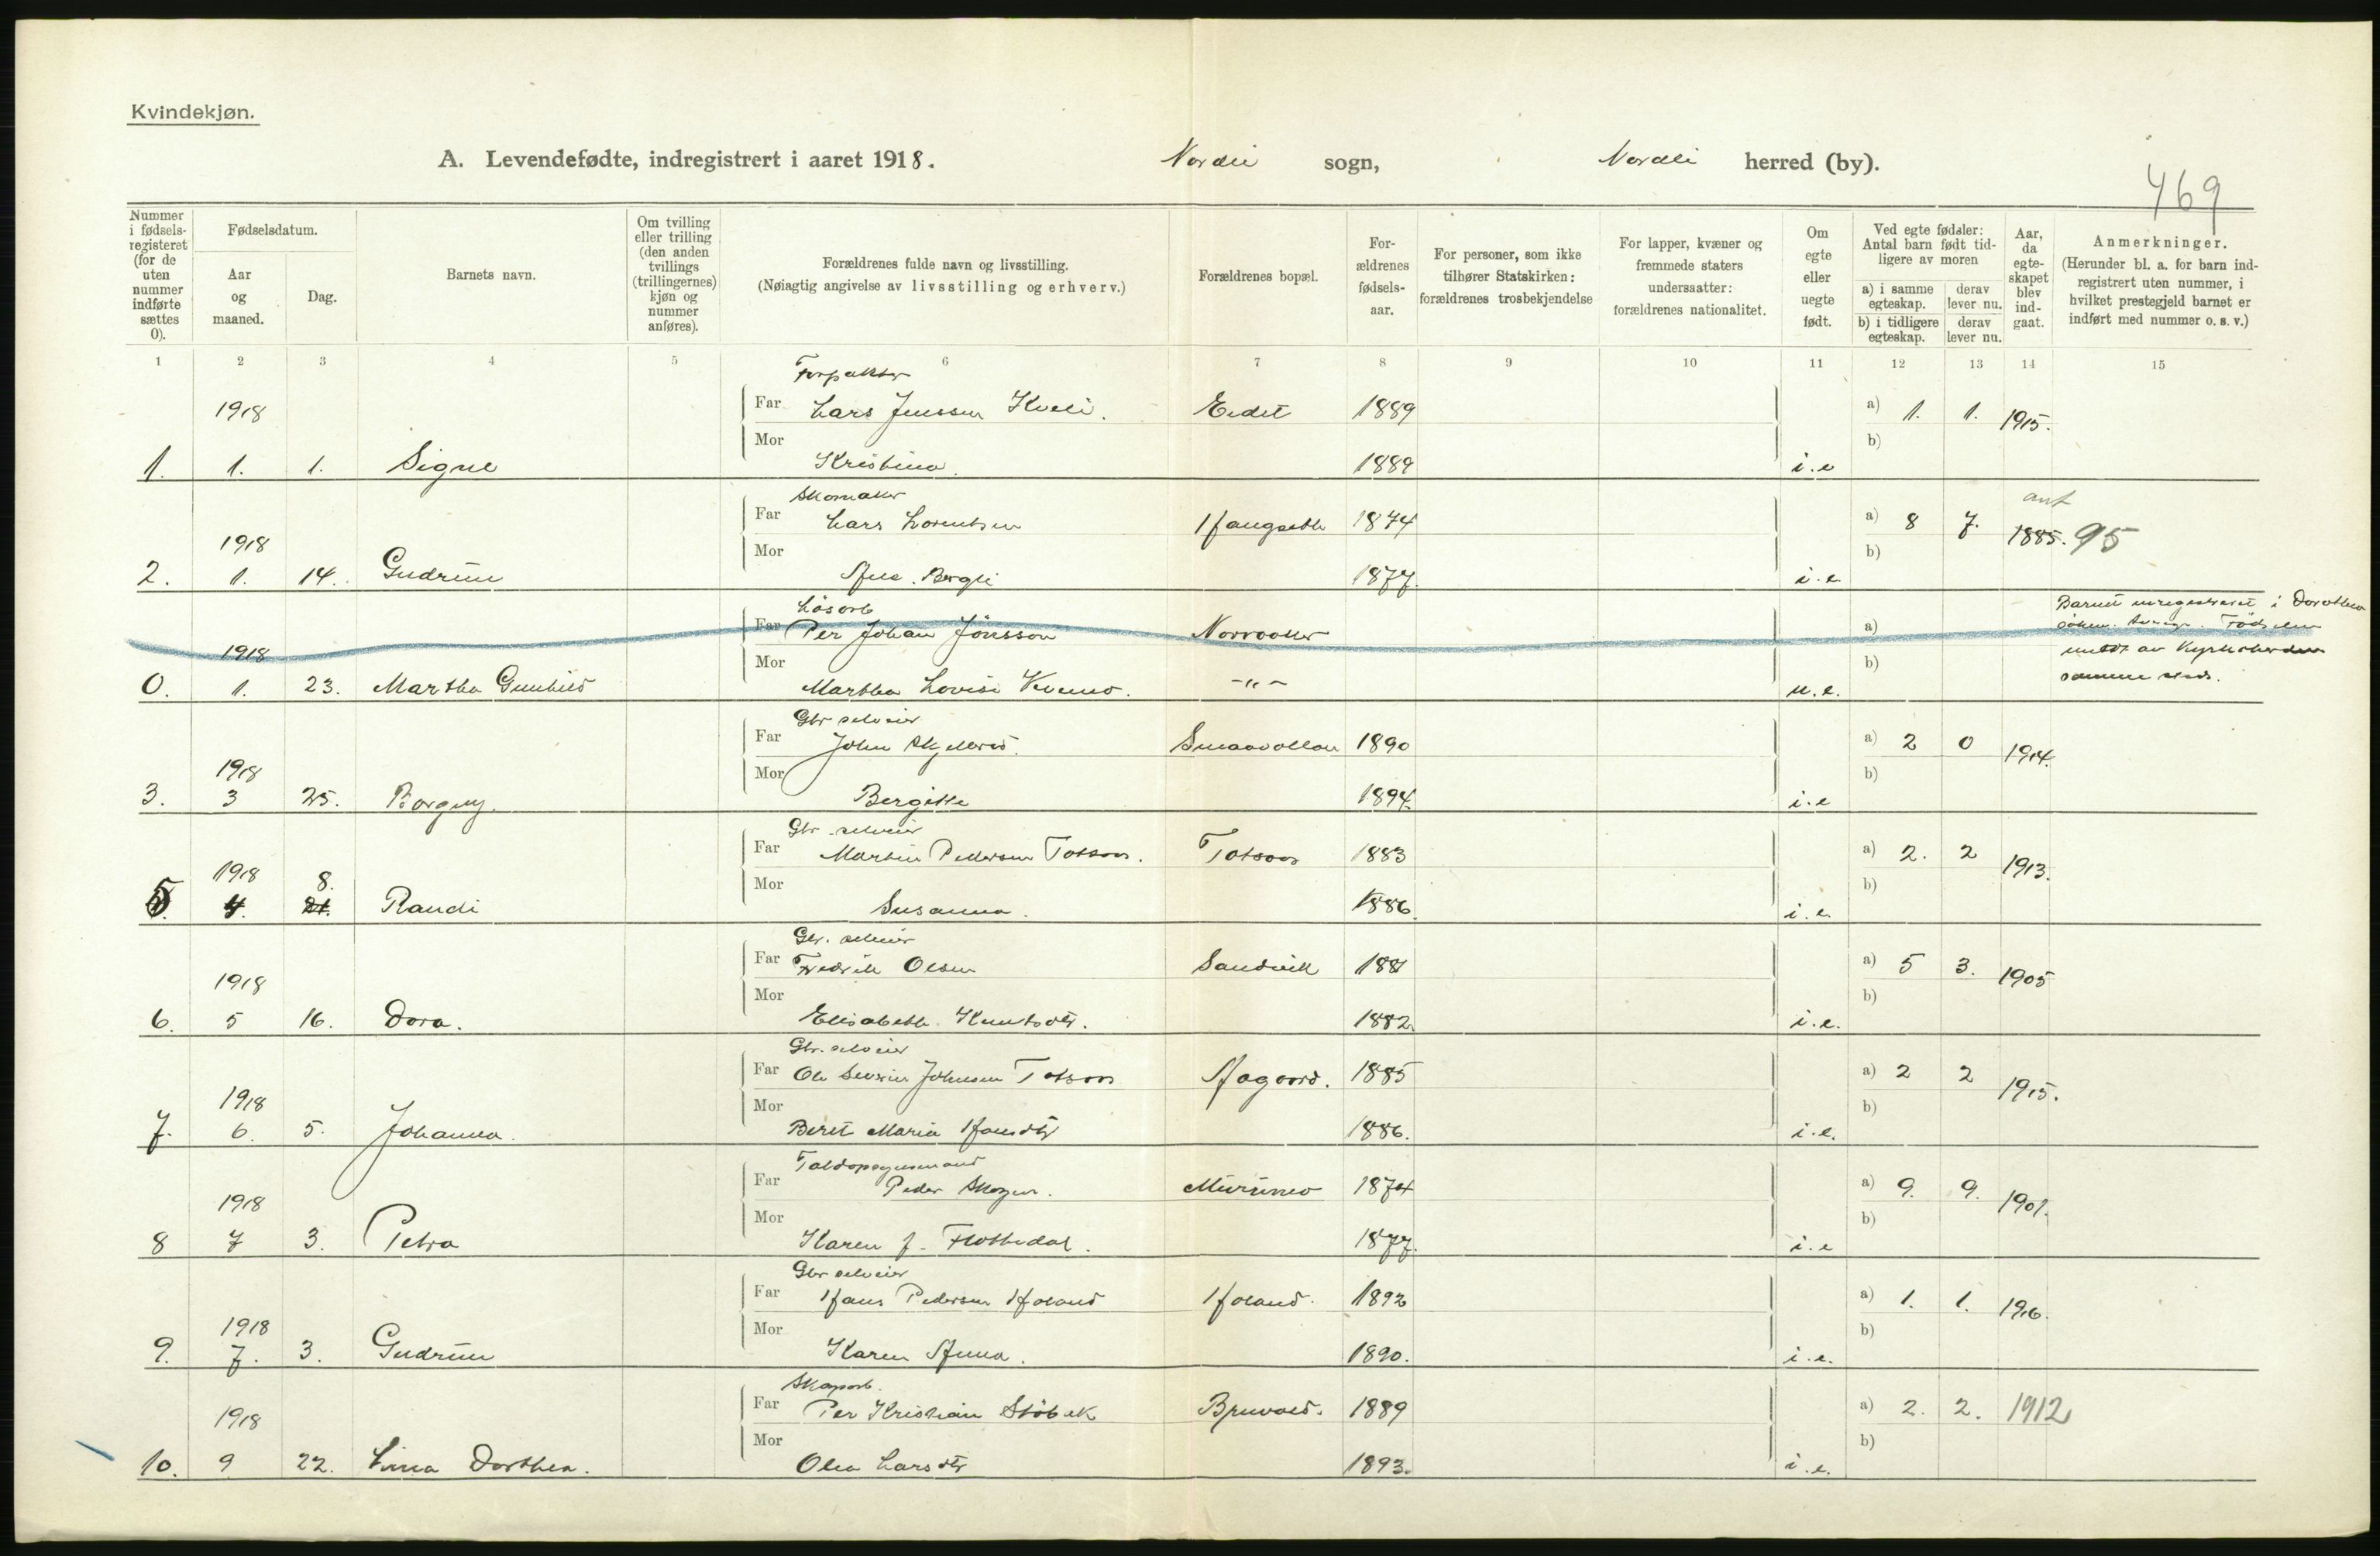 Kvindekjøn.
A. Levendefødte, indregistrert i aaret 1918. Nordli sogn, Nordli herred (by).
469
Nummer i fødsels-registeret (for de uten nummer indførte sættes 0).
Fødselsdatum.
Aar og maaned.
Dag.
Barnets navn.
Om tvilling eller trilling (den anden tvillings (trillingernes) kjøn og nummer anføres).
Forældrenes fulde navn og livsstilling.
(Nøiagtig angivelse av livsstilling og erhverv.)
Forældrenes bopæl.
For-ældrenes fødsels-aar.
For personer, som ikke tilhører Statskirken: forældrenes trosbekjendelse
For lapper, kvæner og fremmede staters undersaatter: forældrenes nationalitet.
Om egte eller uegte født.
Ved egte fødsler: Antal barn født tid-ligere av moren
a) i samme egteskap. derav lever nu.
b) i tidligere egteskap. derav lever nu.
Aar, da egte-skapet blev ind-gaat.
Anmerkninger.
(Herunder bl. a. for barn ind-registrert uten nummer, i hvilket prestegjeld barnet er indført med nummer o. s. v.)
1 2 3 4 5 6 7 8 9 10 11 12 13 14 15
Forpakter
1918 Far Lars Jenssen Kveli. Eidet 1889 a) 1. 1. 1915.
Mor b)
1. 1. 1. Signe Kristina. 1889 i.e
Skomaker ant
Far Lars Lorentsen 1874 a) 8 7. 1885. 95
1918 Mor b)
2. 1. 14. Gudrun Ane. Bergli 1877. i.e.
Løsarb Barnet i Dorothea
Far Per Johan Jönsson a) Fødselen
1918 Mor b) av
0. 1. 23. Martha Gunhild Martha Lovise -"- u.e. samme sted.
Gbr selveier
Far John Skjelbred. Smaavollan 1890 a) 2 0 1914.
1918 Mor b)
3. 3 25. Borgny. Bergitte 1894. i.e
Gbr. selveier
1918 8. Far Martin Pedersen Totsaas. Totsaas 1883 a) 2. 2 1913.
Mor b)
5. 4. 21. Randi Susanna. 1886. i.e.
Gbr. selveier
Far Fredrik Olsen Sandvik 1881 a) 5 3. 1905
1918 Mor b)
6. 5 16. Dora. Elisabeth Knutsdtr. 1882. i.e.
Gbr. selveier
Far Ole Sevrin Johnsen Totsaas Aagaard. 1885 a) 2 2 1915.
1918 Mor b)
7. 6. 5. Johanna. Beret Maria Hansdtr 1886. i.e.
Toldopsynsmand
Far Peder Skogen. Murumo 1874 a) 9. 9. 1901.
1918 Mor b)
8 7 3. Petra Karen f. 1877. i.e
Gbr selveier
Far Hans Pedersen Holand Holand. 1892 a) 1. 1. 1916.
1918 Mor b)
9. 7. 3. Gudrun Karen Anna. 1890. i.e.
Skogarb.
1918 Far Per Kristian Støbak 1889 a) 2. 2. 1912
Mor b)
10. 9 22. Dorthea. Olea Larsdtr 1893. i.e.